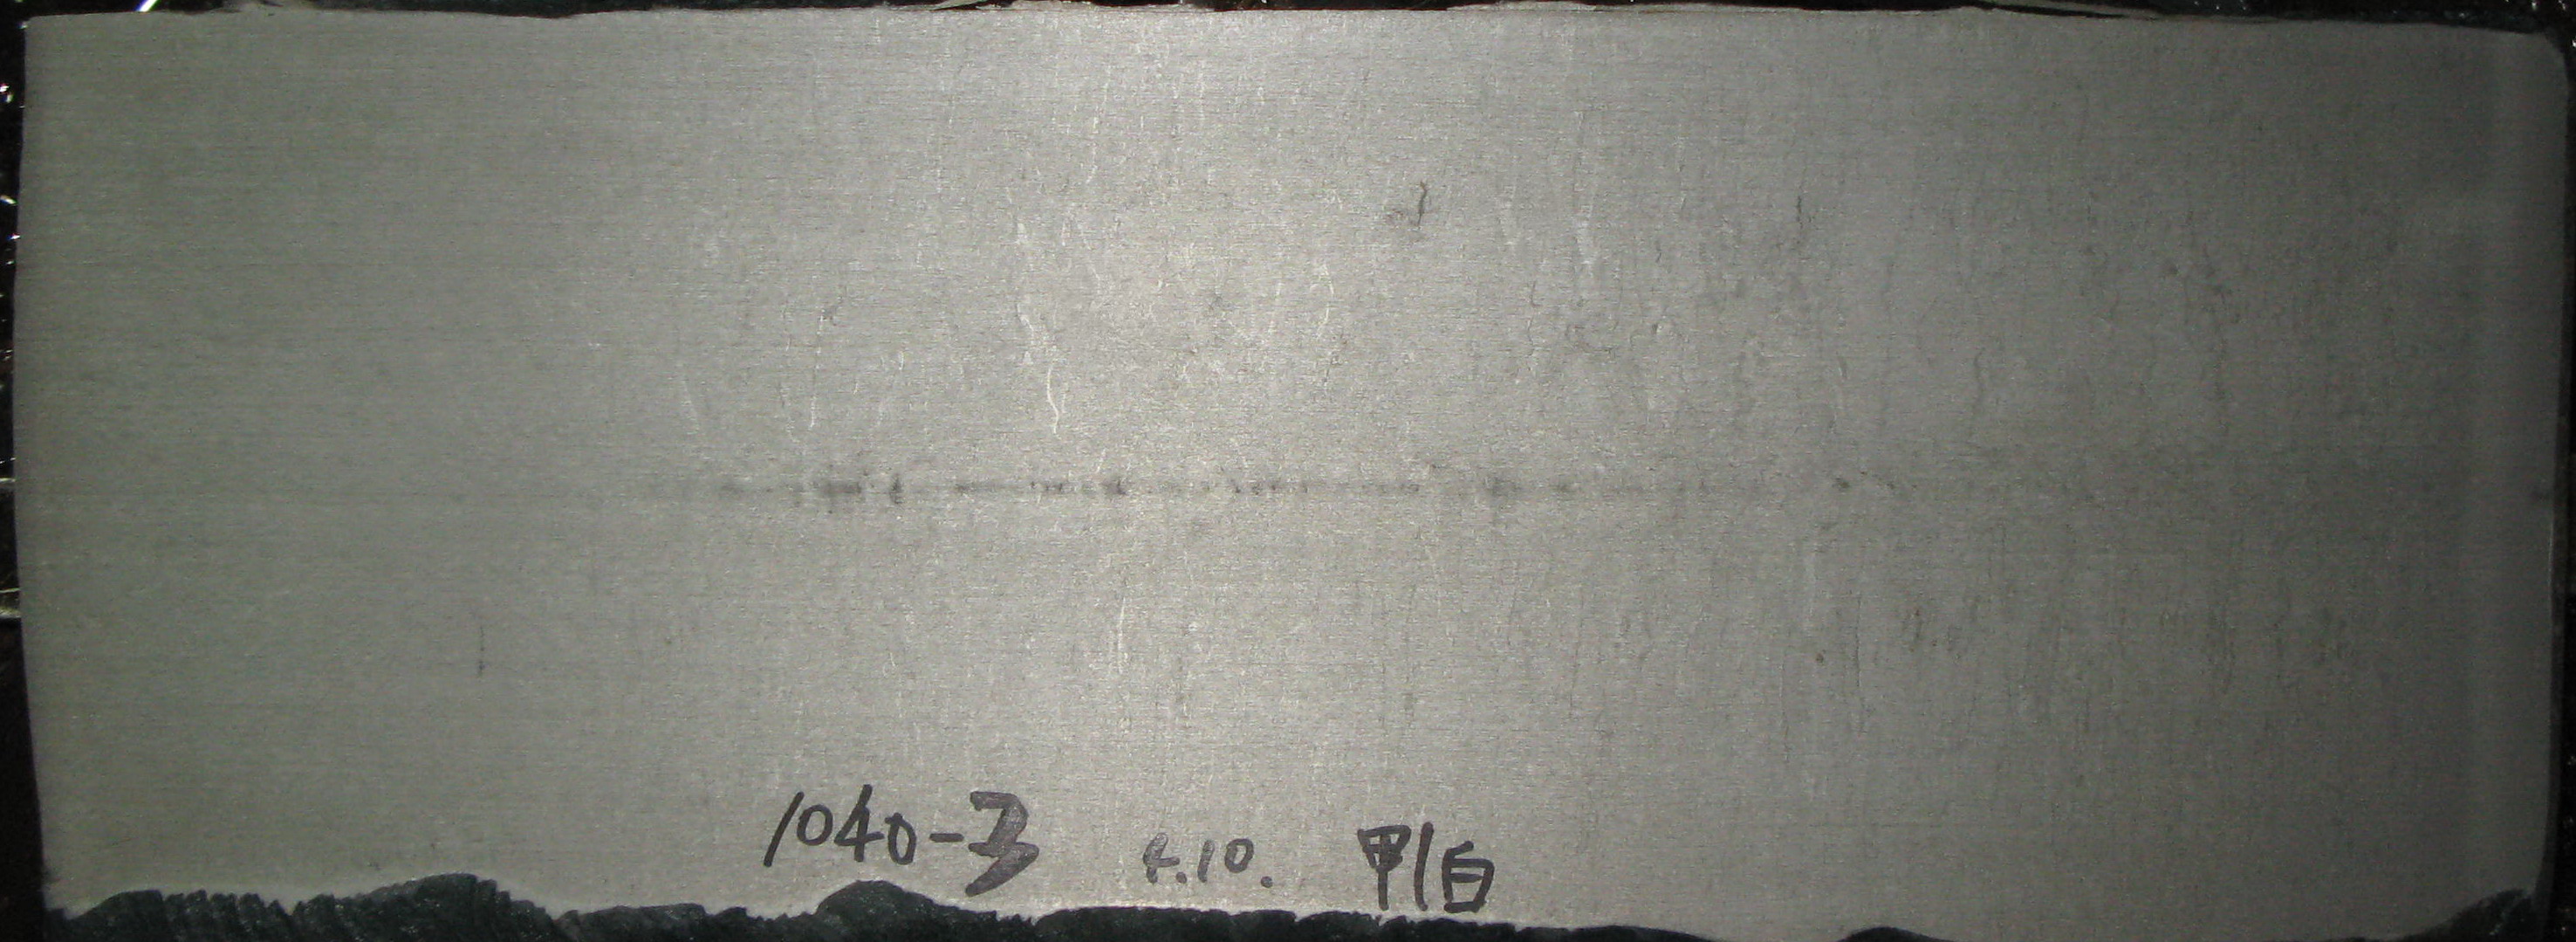 1040-3 4.10. 甲/白